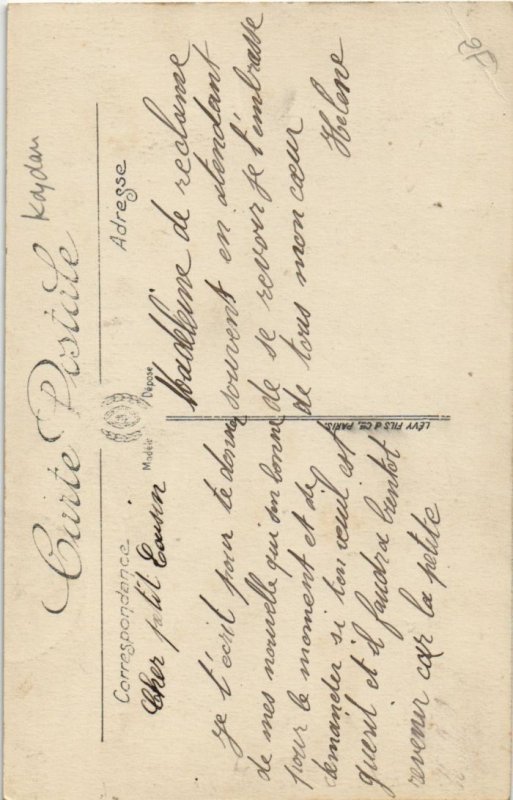 Carte Postale
Kaydan
Correspondance
Adresse
Modèle
Déposé
LÉVY FILS & Cie, PARIS.
Cher p'tit Cousin
je t'écrit pour te donner
de mes nouvelle qui son bonne
pour le moment et de
demander si ton euil est
guerit et il faudra bientot
revener car la petite
Madeleine de reclame
souvent en atendant
de se revoir je t'embrasse
de tous mon cœur
Helene